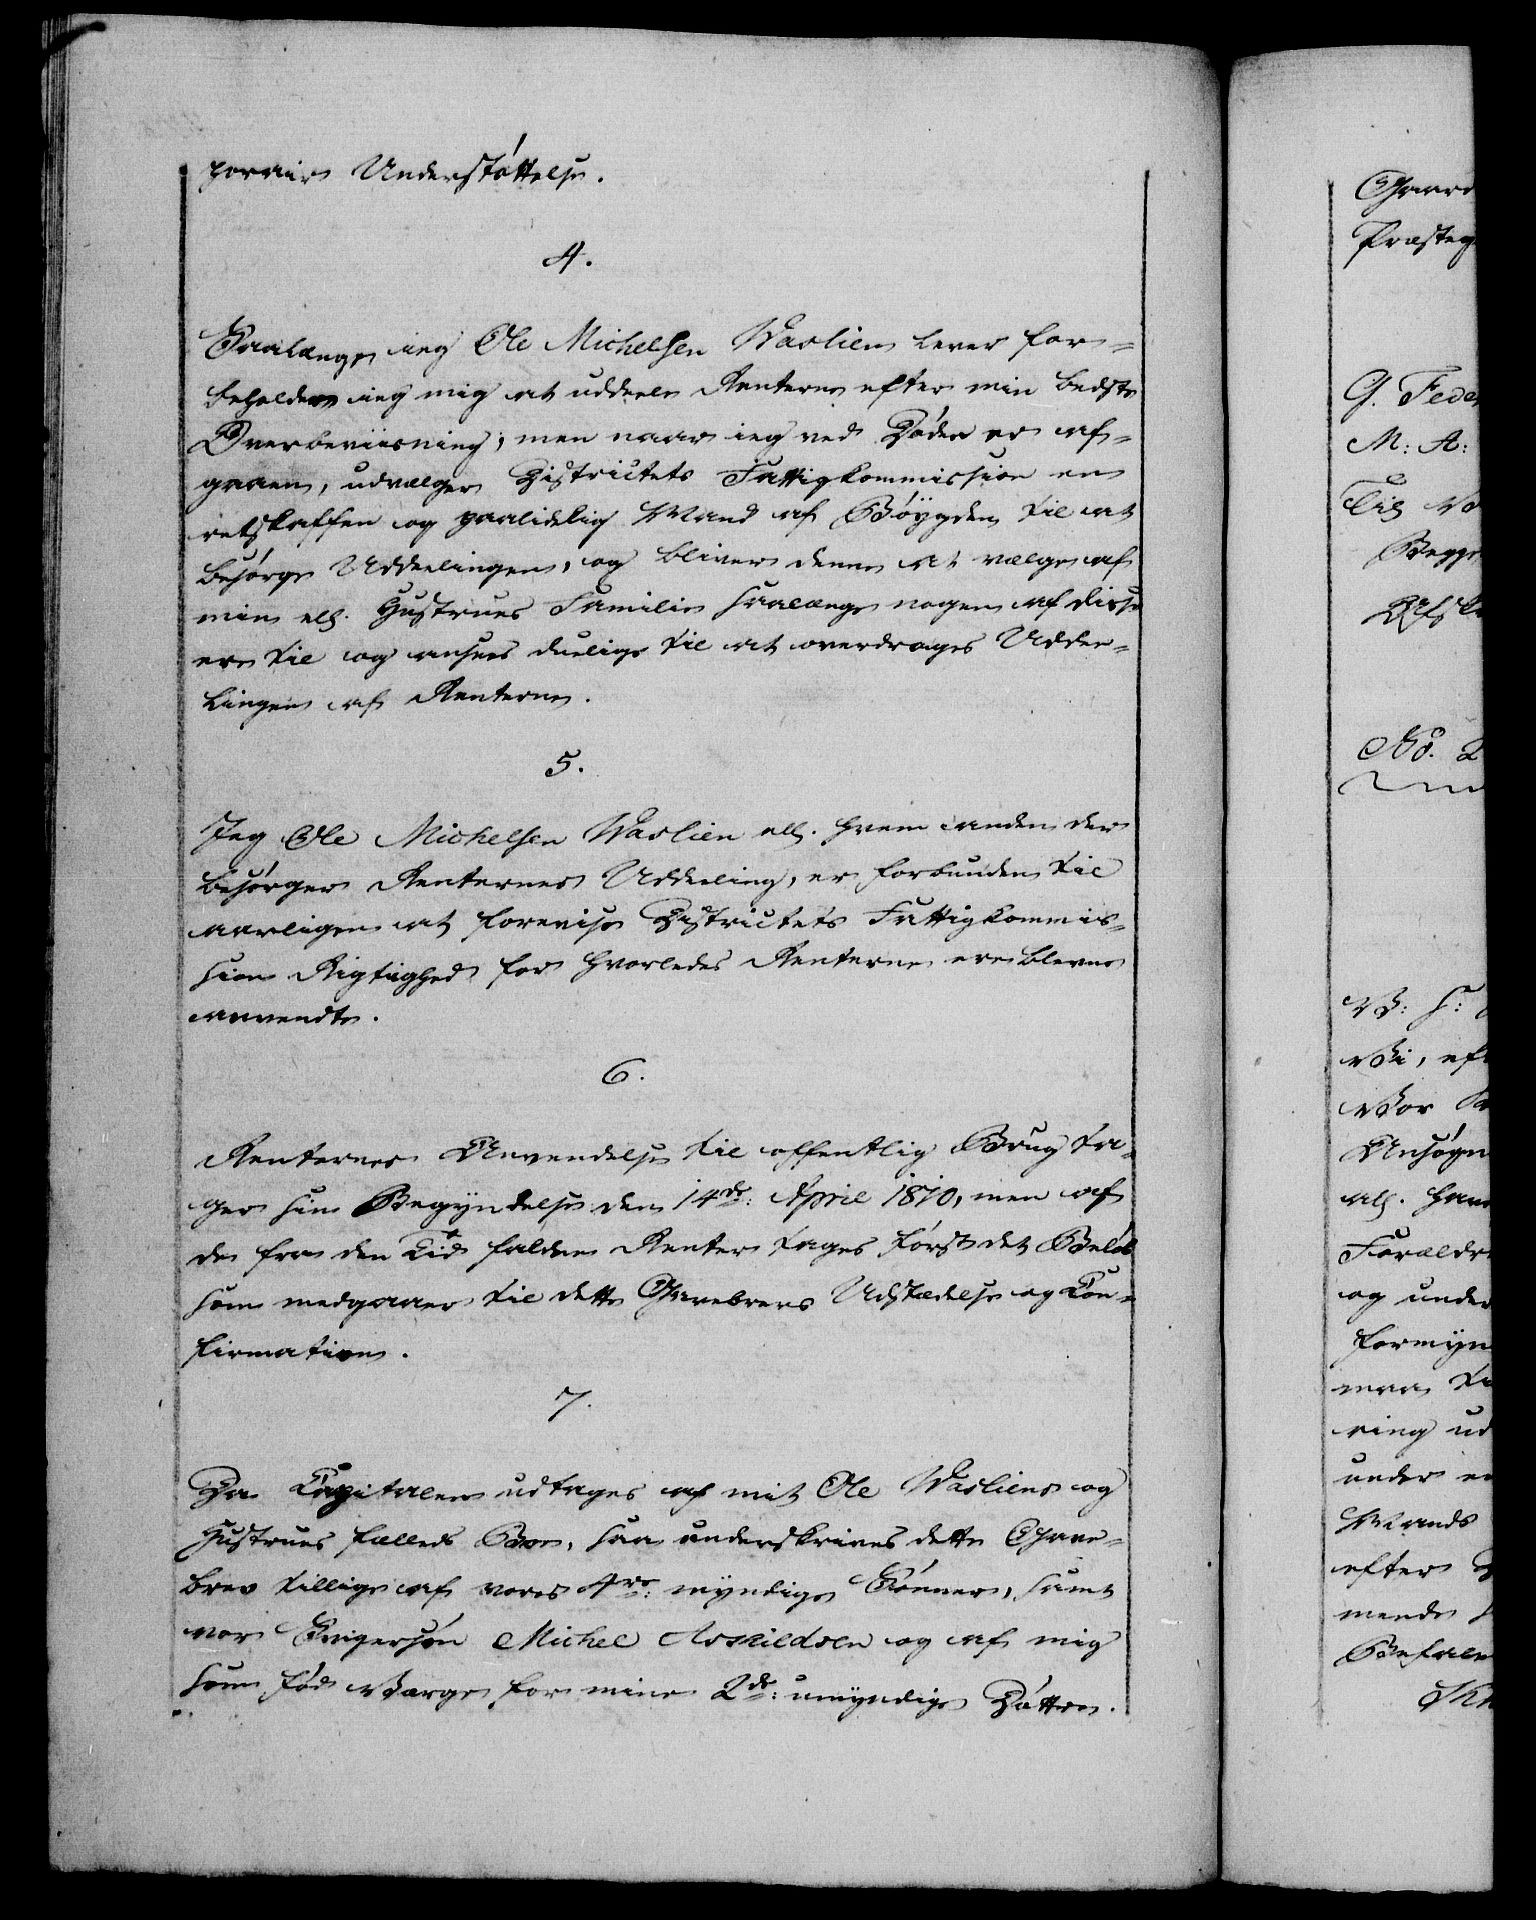 porair Understøttelse.
4.
Saalænge ieg Ole Michelsen Waslien lever for-
beholder ieg mig at uddeele Renterne efter min bedste
Overbeviisning; men naar ieg ved Døden er af-
gaaen, udvælger Districtets Fattigkommission en
retskaffen og paalidelig Mand af Bøygden til at
besørge Uddelingen, og bliver denne at vælge af
min ell. Hustrues Familie saalænge nogen af disse
ere til og ansees duelige til at overdrages Uddee-
lingen af Renterne.
5.
Jeg Ole Michelsen Waslien ell. hvem anden der
besørger Renternes Uddeeling, er forbunden til
aarligen at forevise Districtets Fattigkommis-
sion Rigtighed for hvorledes Renterne ere blevne
anvendte.
6.
Renternes Anvendelse til offentlig Brug ta-
ger sin Begyndelse den 14de: April 1810, men af
de fra den Tid faldne Renter tages først det Beløb
som medgaaer til dette Gavebrevs Udstædelse og Con-
firmation.
7.
Da Capitalen udtages af mit Ole Wasliens og
Hustrues fælleds Boe, saa underskrives dette Gave-
brev tillige af vores 4re: myndige Sønner, samt
vor Svigersøn Michel Askildsen og af mig
som fød Værge for mine 2de: umyndige Døttre.
Gaard
Præsteg
G. Fede
M: A:
Til
Begge
No. 2
V: S:
Vi, eft
Vor
Ansøgn
all. hav
Forældre
og under
formyn
maa
ring ud
under
Mands
efter
mende
Befale